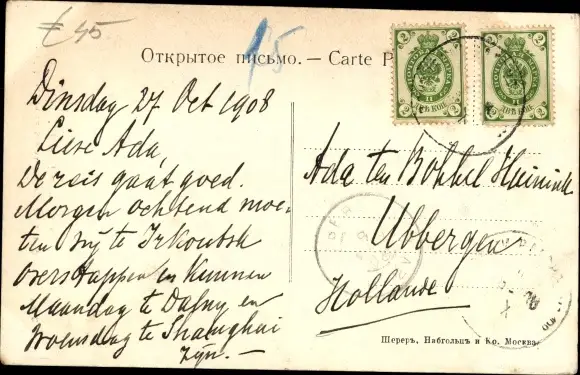 £45
45
Открытое письмо. — Carte P
2 2
ДВѢ КОП.
2 2
ДВѢ КОП.
Dinsdag 27 Oct 1908
Lieve Ada,
De reis gaat goed.
Morgen ochtend moe-
ten wij te Irkoutsk
overstappen en kunnen
Maandag te Dalny en
Woensdag te Shanghai
zijn. —
Ada ten Bokkel Heinink
Ubbergen
Hollande
Шереръ, Набгольцъ и Ко. Москва.